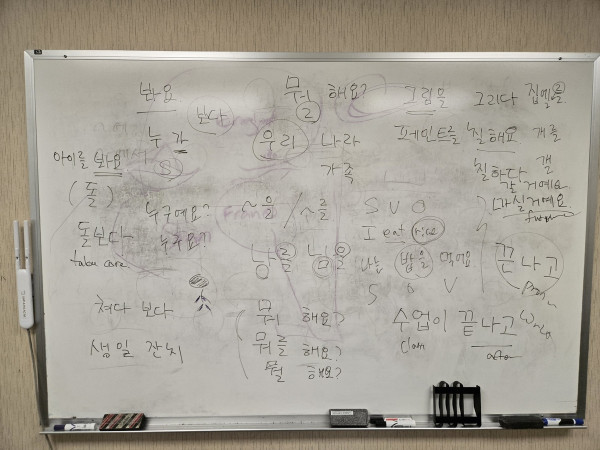 봐요
보다
누가
S
아이를 봐요
(돌)
돌보다
take care
누구예요?
누구요?!
쳐다 보다
생일 잔치
뭘 해요?
우리 나라
가족
~을 / ~를
From
낭를 남을
뭐 해요?
뭐를 해요?
뭘 해요?
그림을 그리다
페인트를 칠해요
칠하다
집에를
개를
갤
갈거예요
마실거예요
S V O
I eat rice
나는 밥을 먹어요
S O V
끝나고
수업이 끝나고
Class
after